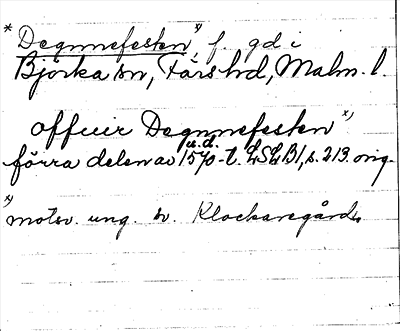 * Degnnefesten *), f. gd i
Björka sn, Färs hd, Malm. l.
offuir Degnnefesten *)
u. d.
förra delen av 1570-t. LSLB1, s. 219. orig.
*) motsv. ung. sv. Klockaregården